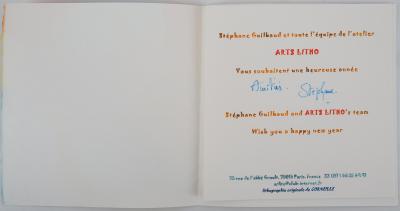 Stéphane Guilbaud et toute l'équipe de l'atelier
ARTS LITHO
Vous souhaitent une heureuse année
Amitiés. Stéphane.
Stéphane Guilbaud and ARTS LITHO's team
Wish you a happy new year
Paris, France
lithographie originale de CORNEILLE